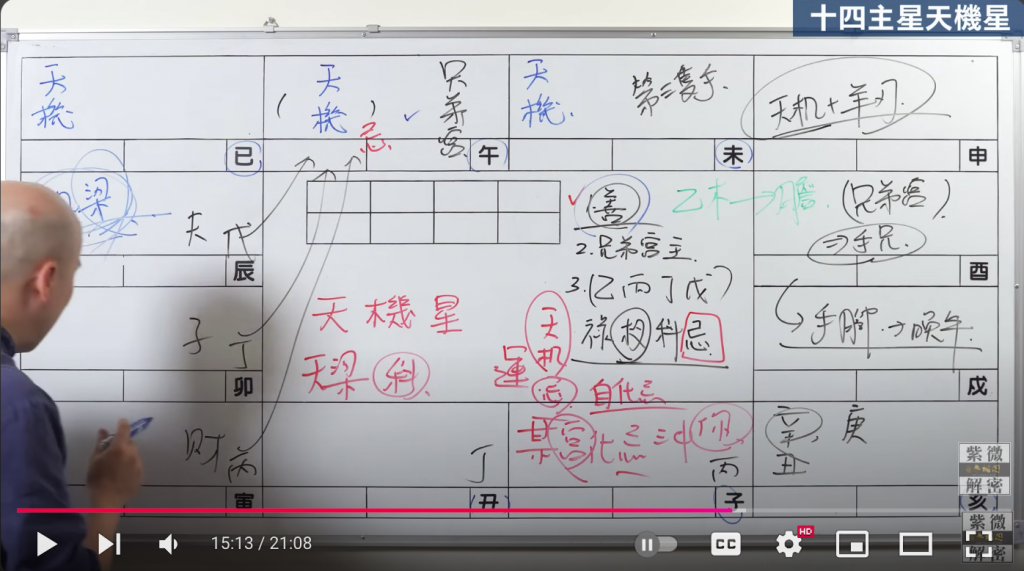 十四主星天機星
天機
(天機)忌
兄弟宮
天機
第三隻手
天机+羊刃
巳
午
未
申
梁
夫
(善)
乙木→膽
(兄弟宮)
2.兄弟宮主
⇒手兄
3.(乙丙丁戊)
辰
酉
天機星
天机忌
祿权科忌
手腳→晚年
子丁
天梁科
運
自化忌
卯
戌
财丙
丁
某宮化忌冲命
丙
辛、庚
丑
紫微
解密
寅
丑
子
亥
紫微
解密
15:13 / 21:08
CC
HD